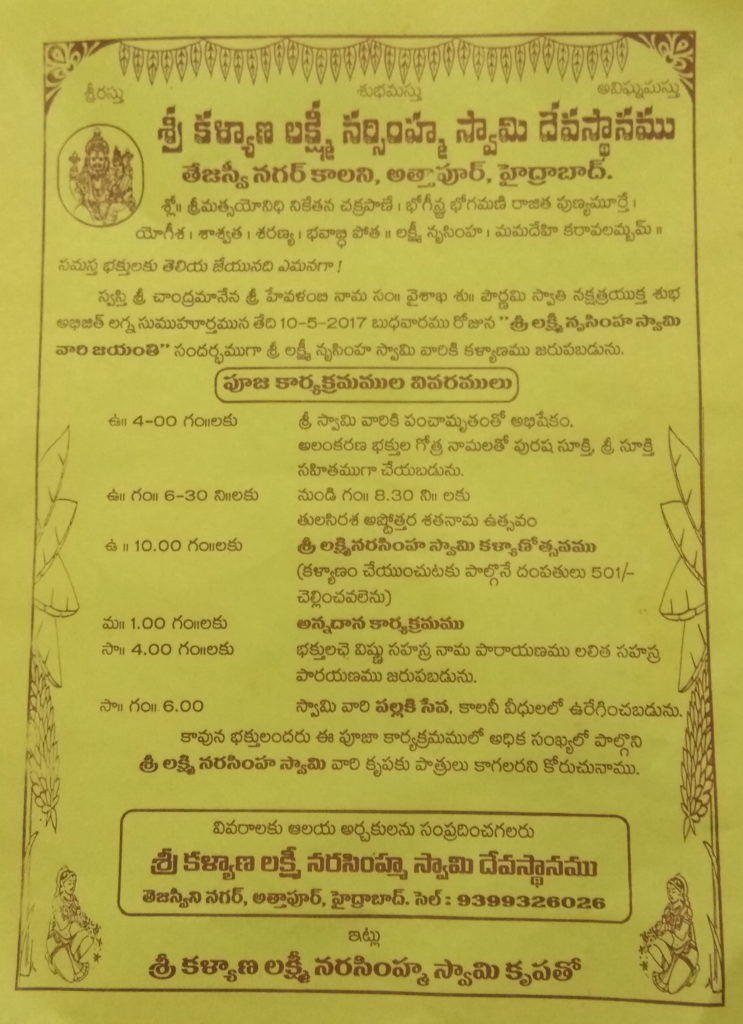 శ్రీరస్తు శుభమస్తు అవిఘ్నమస్తు
శ్రీ కళ్యాణ లక్ష్మీ నర్సింహ్మ స్వామి దేవస్థానము
తేజస్వీ నగర్ కాలని, అత్తాపూర్, హైద్రాబాద్.
శ్లో॥ శ్రీమత్పయోనిధి నికేతన చక్రపాణే । భోగీన్ద్ర భోగమణి రాజిత పుణ్యమూర్తే ।
యోగీశ । శాశ్వత । శరణ్య । భవాబ్ధి పోత ॥ లక్ష్మీ నృసింహ । మమదేహి కరావలమ్బమ్ ॥
సమస్త భక్తులకు తెలియ జేయునది ఎమనగా !
స్వస్తి శ్రీ చాంద్రమానేన శ్రీ హేవళంబి నామ సం॥ వైశాఖ శు॥ పౌర్ణమి స్వాతి నక్షత్రయుక్త శుభ
అభిజిత్ లగ్న సుముహూర్తమున తేది 10-5-2017 బుధవారము రోజున "శ్రీ లక్ష్మీ నృసింహ స్వామి
వారి జయంతి" సందర్భముగా శ్రీ లక్ష్మీ నృసింహ స్వామి వారికి కళ్యాణము జరుపబడును.
పూజ కార్యక్రమముల వివరములు
ఉ॥ 4-00 గం॥లకు శ్రీ స్వామి వారికి పంచామృతంతో అభిషేకం,
అలంకరణ భక్తుల గోత్ర నామలతో పురష సూక్తి, శ్రీ సూక్తి
సహితముగా చేయబడును.
ఉ॥ గం॥ 6-30 ని॥లకు నుండి గం॥ 8.30 ని॥ లకు
తులసిరశ అష్టోత్తర శతనామ ఉత్సవం
ఉ ॥ 10.00 గం॥లకు శ్రీ లక్ష్మినరసింహ స్వామి కళ్యాణోత్సవము
(కళ్యాణం చేయించుటకు పాల్గొనే దంపతులు 501/-
చెల్లించవలెను)
మ॥ 1.00 గం॥లకు అన్నదాన కార్యక్రమము
సా॥ 4.00 గం॥లకు భక్తులచె విష్ణు సహస్ర నామ పారాయణము లలిత సహస్ర
పారయణము జరుపబడును.
సా॥ గం॥ 6.00 స్వామి వారి పల్లకి సేవ, కాలనీ వీధులలో ఉరేగించబడును.
కావున భక్తులందరు ఈ పూజా కార్యక్రమములో అధిక సంఖ్యలో పాల్గొని
శ్రీ లక్ష్మి నరసింహ స్వామి వారి కృపకు పాత్రులు కాగలరని కోరుచునాము.
వివరాలకు ఆలయ అర్చకులను సంప్రదించగలరు
శ్రీ కళ్యాణ లక్ష్మీ నరసింహ్మ స్వామి దేవస్థానము
తెజస్విని నగర్, అత్తాపూర్, హైద్రాబాద్. సెల్ : 9399326026
ఇట్లు
శ్రీ కళ్యాణ లక్ష్మీ నరసింహ్మ స్వామి కృపతో